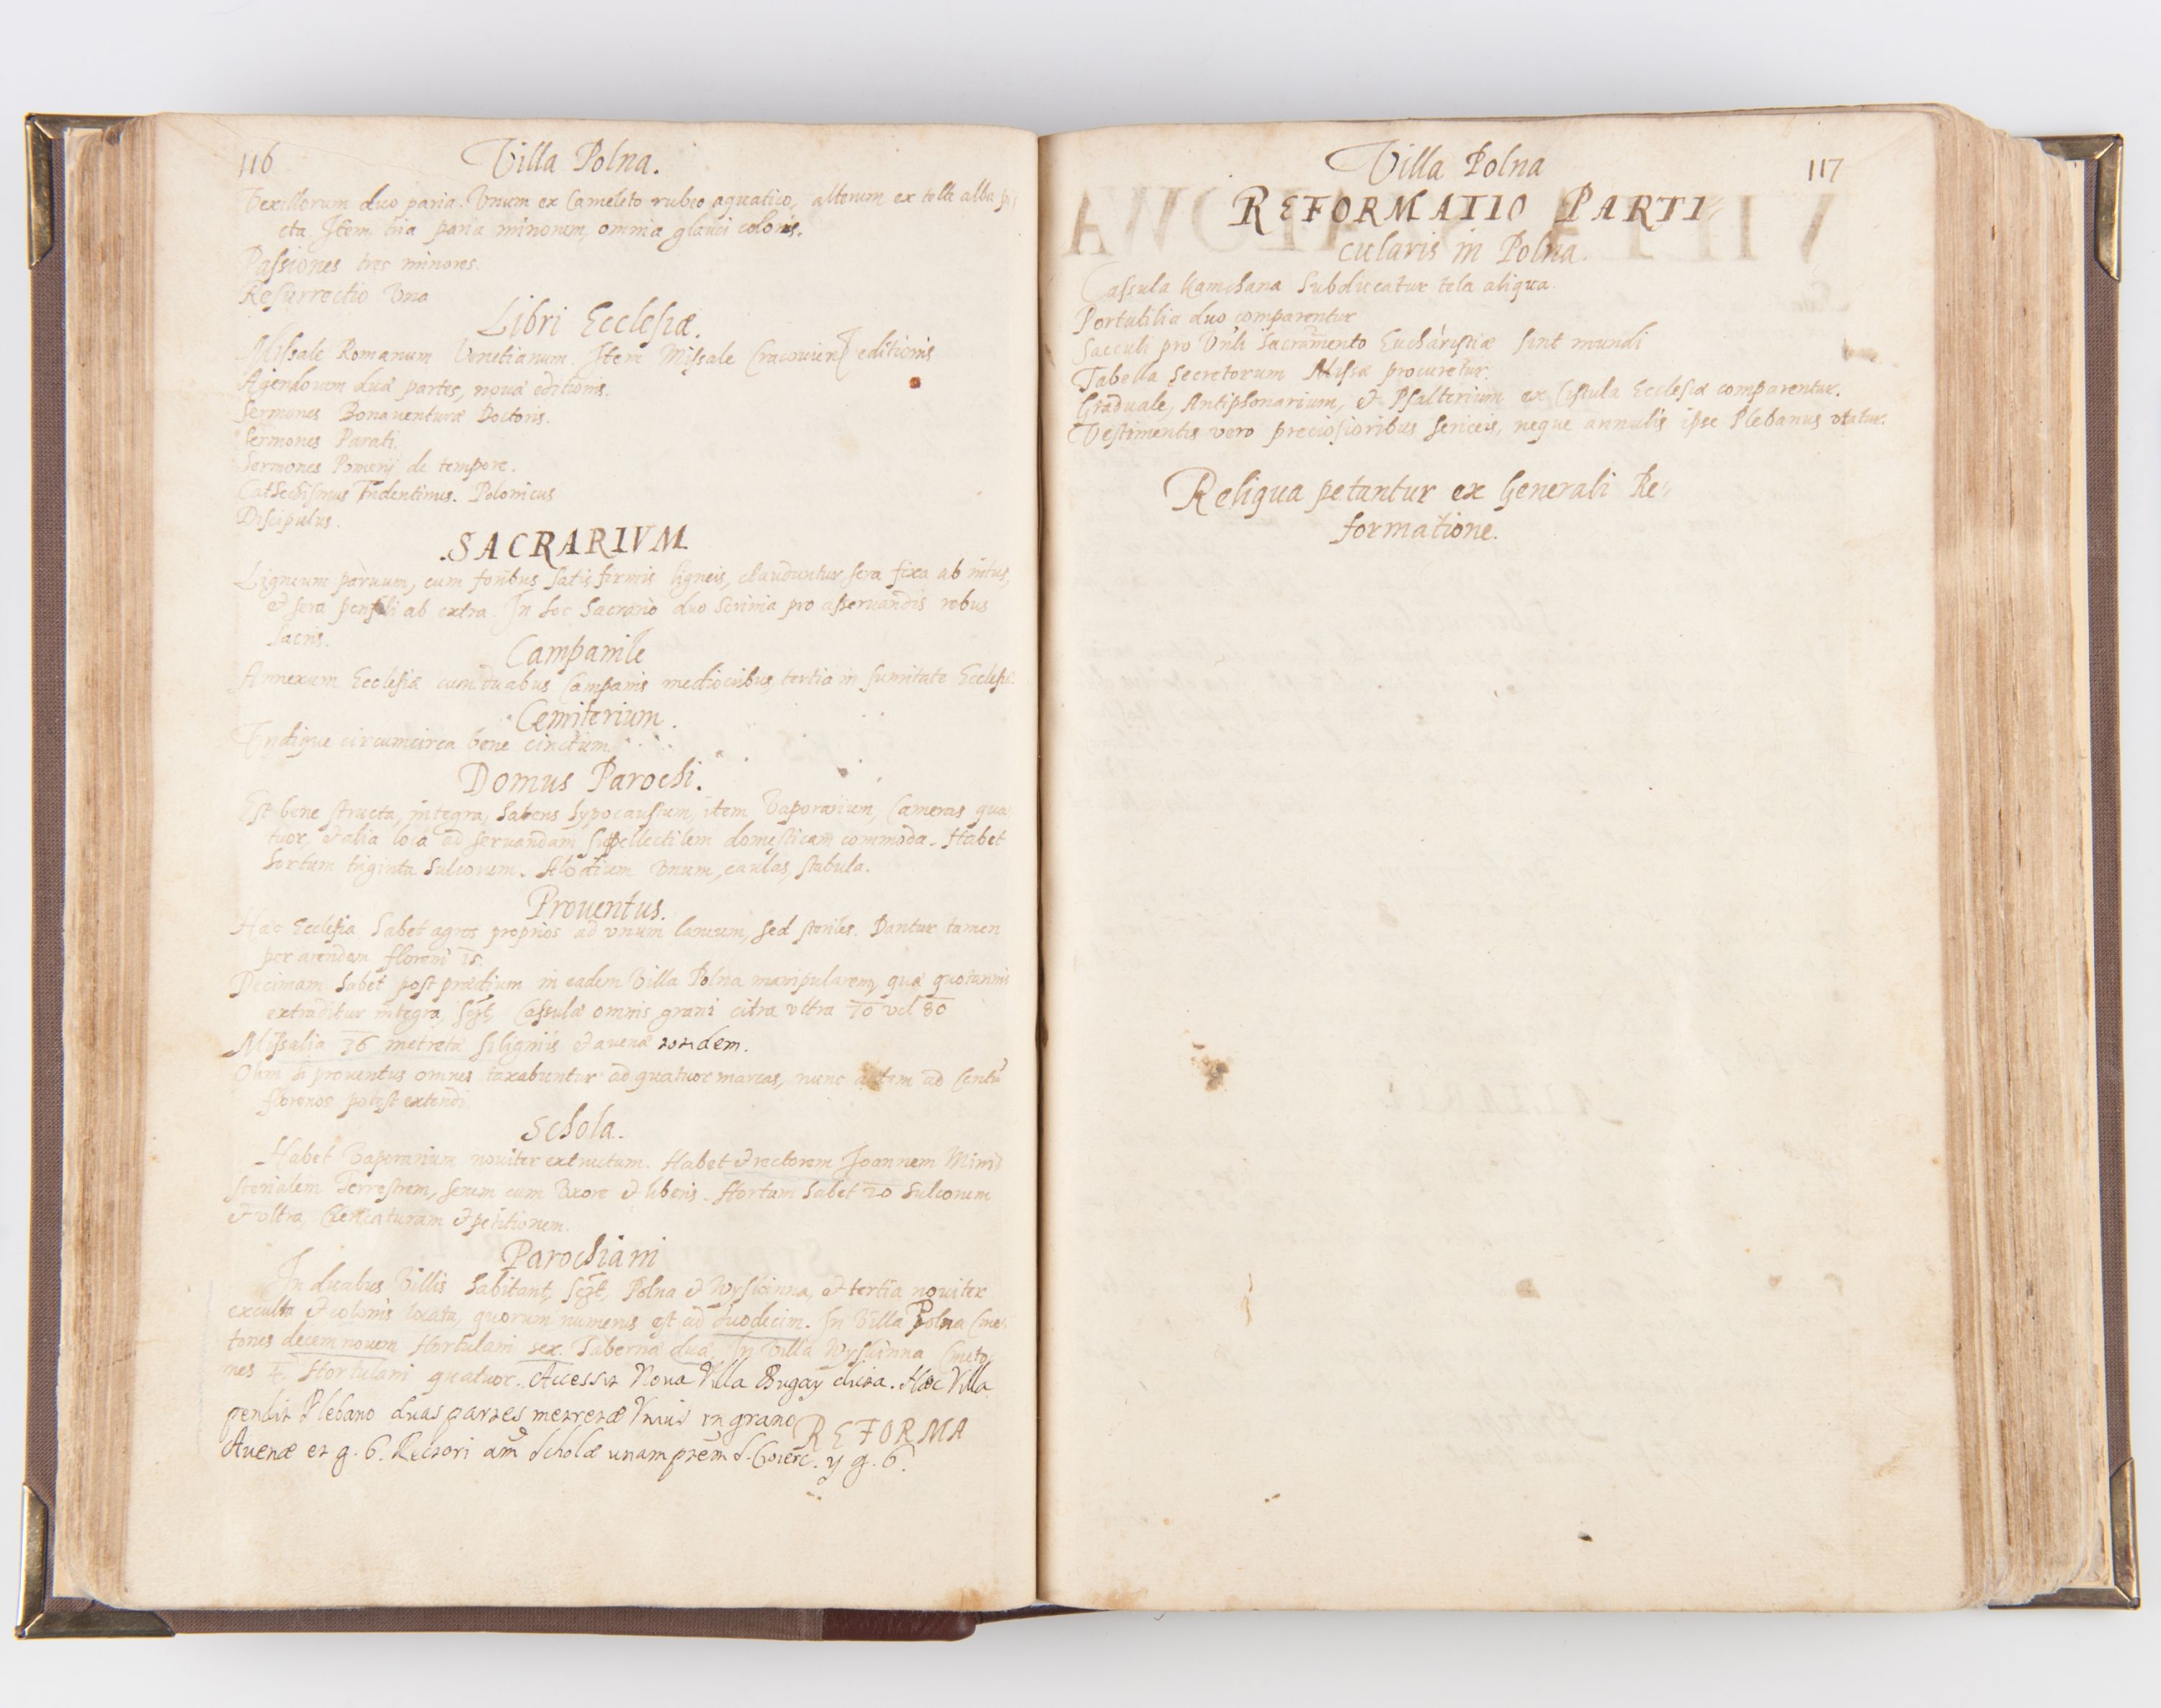 116
Villa Polna.
Vexillorum duo paria. Vnum ex Cameleto rubeo aquatico, alterum ex tella alba pi
cta. Item tria paria minorum, omnia glauci coloris.
Passiones tres minores.
Resurrectio Vna
Libri Ecclesiæ.
Missale Romanum Venetianum. Item Missale Cracouien editionis
Agendorum duæ partes, nouæ editionis.
Sermones Bonauenturæ Doctoris.
Sermones Parati.
Sermones Pomerij de tempore.
Cathechismus Tridentinus. Polonicus
Discipulus.
SACRARIVM.
Ligneum paruum, cum foribus satis firmis ligneis, clauduntur sera fixa ab intus,
et sera pensili ab extra. In hoc Sacrario duo scrinia pro asseruandis rebus
sacris.
Campanile
Annexum Ecclesiæ cum duabus Campanis mediocribus, tertia in sumitate Ecclesiæ.
Cemiterium.
Vndique circumcirca bene cinctum.
Domus Parochi.
Est bene structa, integra, habens hypocaustum, item Vaporarium, Cameras qua
tuor, et alia loca ad seruandam supellectilem domesticam commoda. Habet
hortum triginta sulcorum. Alodium vnum, caulas, stabula.
Prouentus.
Hæc Ecclesia habet agros proprios ad vnum laneum, sed steriles. Dantur tamen
per arendam floreni 15.
Decimam habet post prædium in eadem Villa Polna manipularem, quæ quotannis
extraditur integra, Cassulæ omnis grani citra vltra 70 vel 80
Missalia 36 metretæ siliginis et auenæ totidem.
Olim hi prouentus omnes taxabuntur ad quatuor marcas, nunc autem ad Centū
florenos potest extendi.
Schola.
Habet Vaporarium nouiter extructum. Habet et rectorem Joannem Mini
sterialem Terrestrem, senem cum Vxore et liberis. Hortum habet 20 sulcorum
et vltra, Clericaturam et petitionem.
Parochiani
In duabus Villis habitant, Polna et Wysłoinna, et tertia nouiter
exculta et colonis locata, quorum numerus est ad duodecim. In Villa Polna Cme-
tones decem nouem Hortulani sex. Tabernæ duæ. In Villa Cmeto
nes 4. Hortulani quatuor. Accessit Noua Villa Bugay dicta. Hæc Villa
pendit Plebano duas partes metretæ Vnius in grano
REFORMA
Auenæ et g. 6. Rectori Scholæ unam g. 6.
117
Villa Polna
REFORMATIO PARTI-
cularis in Polna.
Cassula kamchana subducatur tela aliqua.
Portatilia duo comparentur
Sacculi pro Vnli Sacramento Eucharistiæ sint mundi
Tabella secretorum Missæ procuretur.
Graduale, Antiphonarium, et Psalterium ex Cistula Ecclesiæ comparentur.
Vestimentis vero preciosioribus sericeis, neque annulis ipse Plebanus vtatur.
Reliqua petantur ex Generali Re-
formatione.